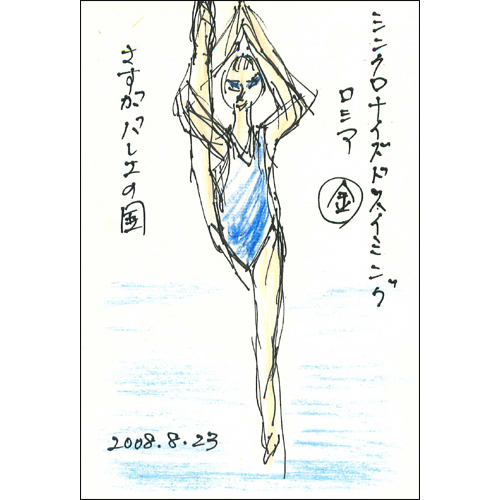 シンクロナイズドスイミング
ロシア
金
さすがバレエの国
2008.8.23